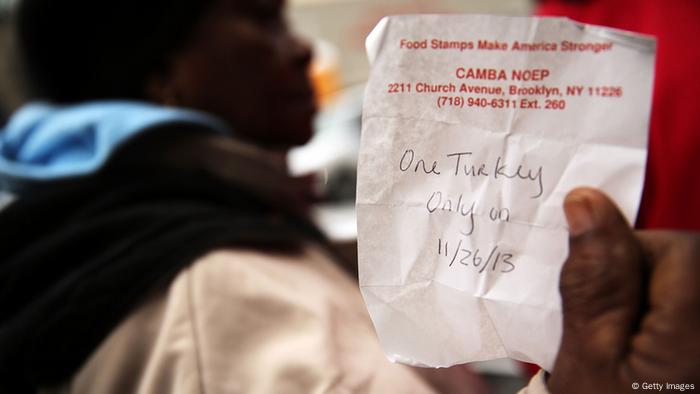 Food Stamps Make America Stronger
CAMBA NOEP
2211 Church Avenue, Brooklyn, NY 11226
(718) 940-6311 Ext. 260
One Turkey
Only on
11/26/13
© Getty Images